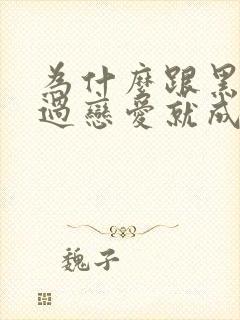 為什麼跟黑
過戀愛就成
魏子